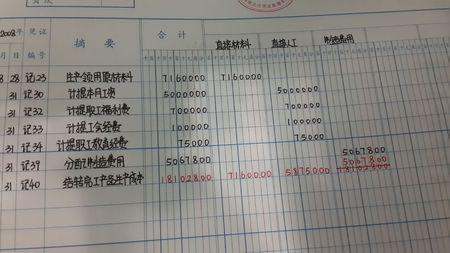 2008年 凭证 摘要 合计
月 日 编号 直接材料 直接人工 制造费用
8 28 记23 生产领用原材料 7160000 7160000
31 记30 计提本月工资 5000000 5000000
31 记32 计提职工福利费 700000 700000
31 记33 计提工会经费 100000 100000
31 记34 计提职工教育经费 75000 75000
31 记39 分配制造费用 5067800 5067800
31 记40 结转完工产品生产成本 18102800 7160000 5875000 5067800
18102800